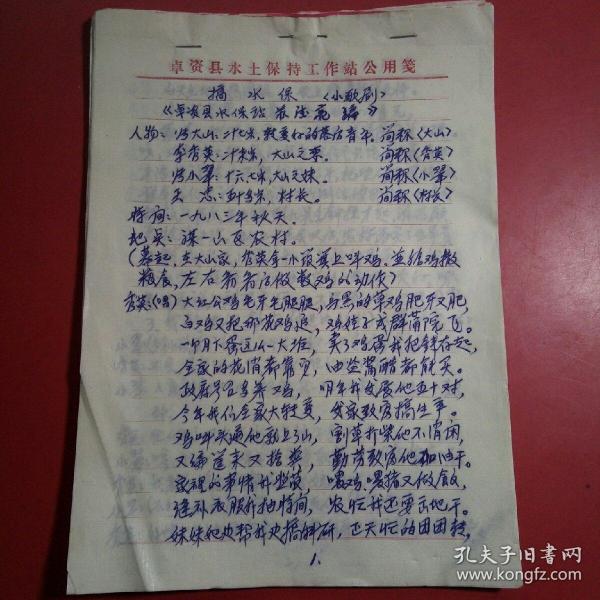 卓资县水土保持工作站公用笺
搞水保《小歌剧》
《卓资县水保站 编》
人物：冯大山：二十七岁，的青年。简称《大山》
李秀英：二十来岁，大山之妻。 简称《秀英》
冯小翠：十六、七岁，大山之妹。 简称《小翠》
王 忠：五十多岁，村长。 简称《村长》
时间：一九八三年秋天。
地点：某一山区农村。
（幕起，在大山家，秀英拿一小簸箕上叫鸡。并给鸡撒
粮食，左右前后做数鸡的动作）
秀英：（唱）大红公鸡毛腿腿，乌黑的草鸡肥又肥，
白鸡又把那花鸡追，鸡娃子成群满院飞。
一个月下蛋这么一大堆，卖了鸡蛋我把钱存起，
全家的花消都靠它，油盐酱醋都能买。
政府号召多养鸡，明年我发展他五十对，
今年我们全家大转变，发家致富搞生产。
鸡叫头遍他就上了山，割草打柴他不消闲，
又编筐来又拾粪，勤劳致富他加油干。
家里的事情我照应，喂鸡喂猪又做饭，
缝补衣服我抽时间，农忙我还要去地干。
妹妹她也帮我也搞科研，正天忙的团团转，
1.
孔夫子旧书网
www.kongfz.com